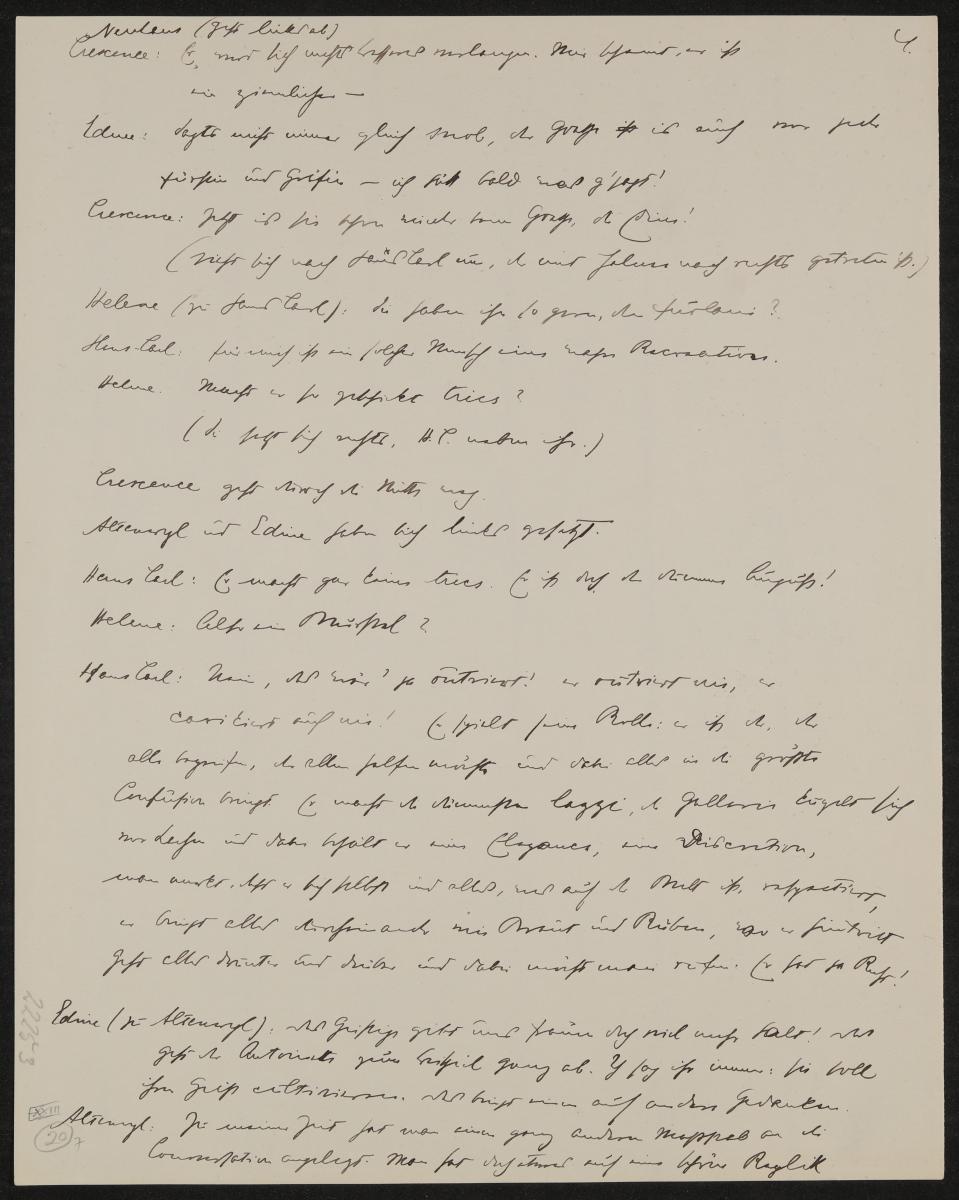 (geht links ab)
4.
Crescence: Er wird sich nichts besseres verlangen. Mir scheint, er ist
ein ziemlicher —
Edine: Sagts nicht immer gleich Snob, der Goethe ist auch vor jeder
Fürstin und Gräfin — ich hätt bald was g'sagt!
Crescence: Jetzt ist sie schon wieder beim Goethe, die Edine!
(sieht sich nach Hans Carl um, der mit Helene nach rechts getreten ist.)
Helene (zu Hans Carl): Sie haben ihn so gern, den Furlani?
Hans Carl: Für mich ist ein solcher Mensch eine wahre Recreation.
Helene. Macht er so geschickte trics?
(Sie setzt sich rechts, H. C. neben ihr.)
Crescence geht durch die Mitte weg.
Altenwyl und Edine haben sich links gesetzt.
Hans Carl: Er macht gar keine trics. Er ist doch der dumme August!
Helene: Also ein Wurstel?
Hans Carl: Nein, das wär' ja outriert! er outriert nie, er
carikiert auch nie! Er spielt seine Rolle: er ist der, der
alle begreifen, der allen helfen möchte und dabei alles in die größte
Confusion bringt. Er macht die dümmsten lazzi, die Gallerie kugelt sich
vor Lachen und dabei behält er eine Elegance, eine Discretion,
man merkt, dass er sich selbst und alles, was auf der Welt ist, respectiert,
er bringt alles durcheinander wie Kraut und Rüben, wo er hintritt
geht alles drunter und drüber und dabei möchte man rufen: Er hat ja Recht!
Edine (zu Altenwyl): Das Geistige gibt uns Frauen doch viel mehr Halt! Das
geht der Antoinette zum Beispiel ganz ab. Ich sag ihr immer: sie soll
ihren Geist cultivieren. Das bringt einen auf andere Gedanken.
Altenwyl: Zu meiner Zeit hat man einen ganz andern Massstab an die
Conversation angelegt. Man hat doch etwas auf eine schöne Replik
XXIII
20
7